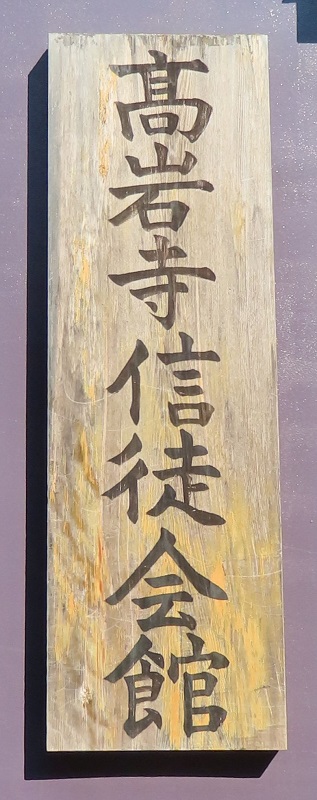 髙岩寺信徒会館